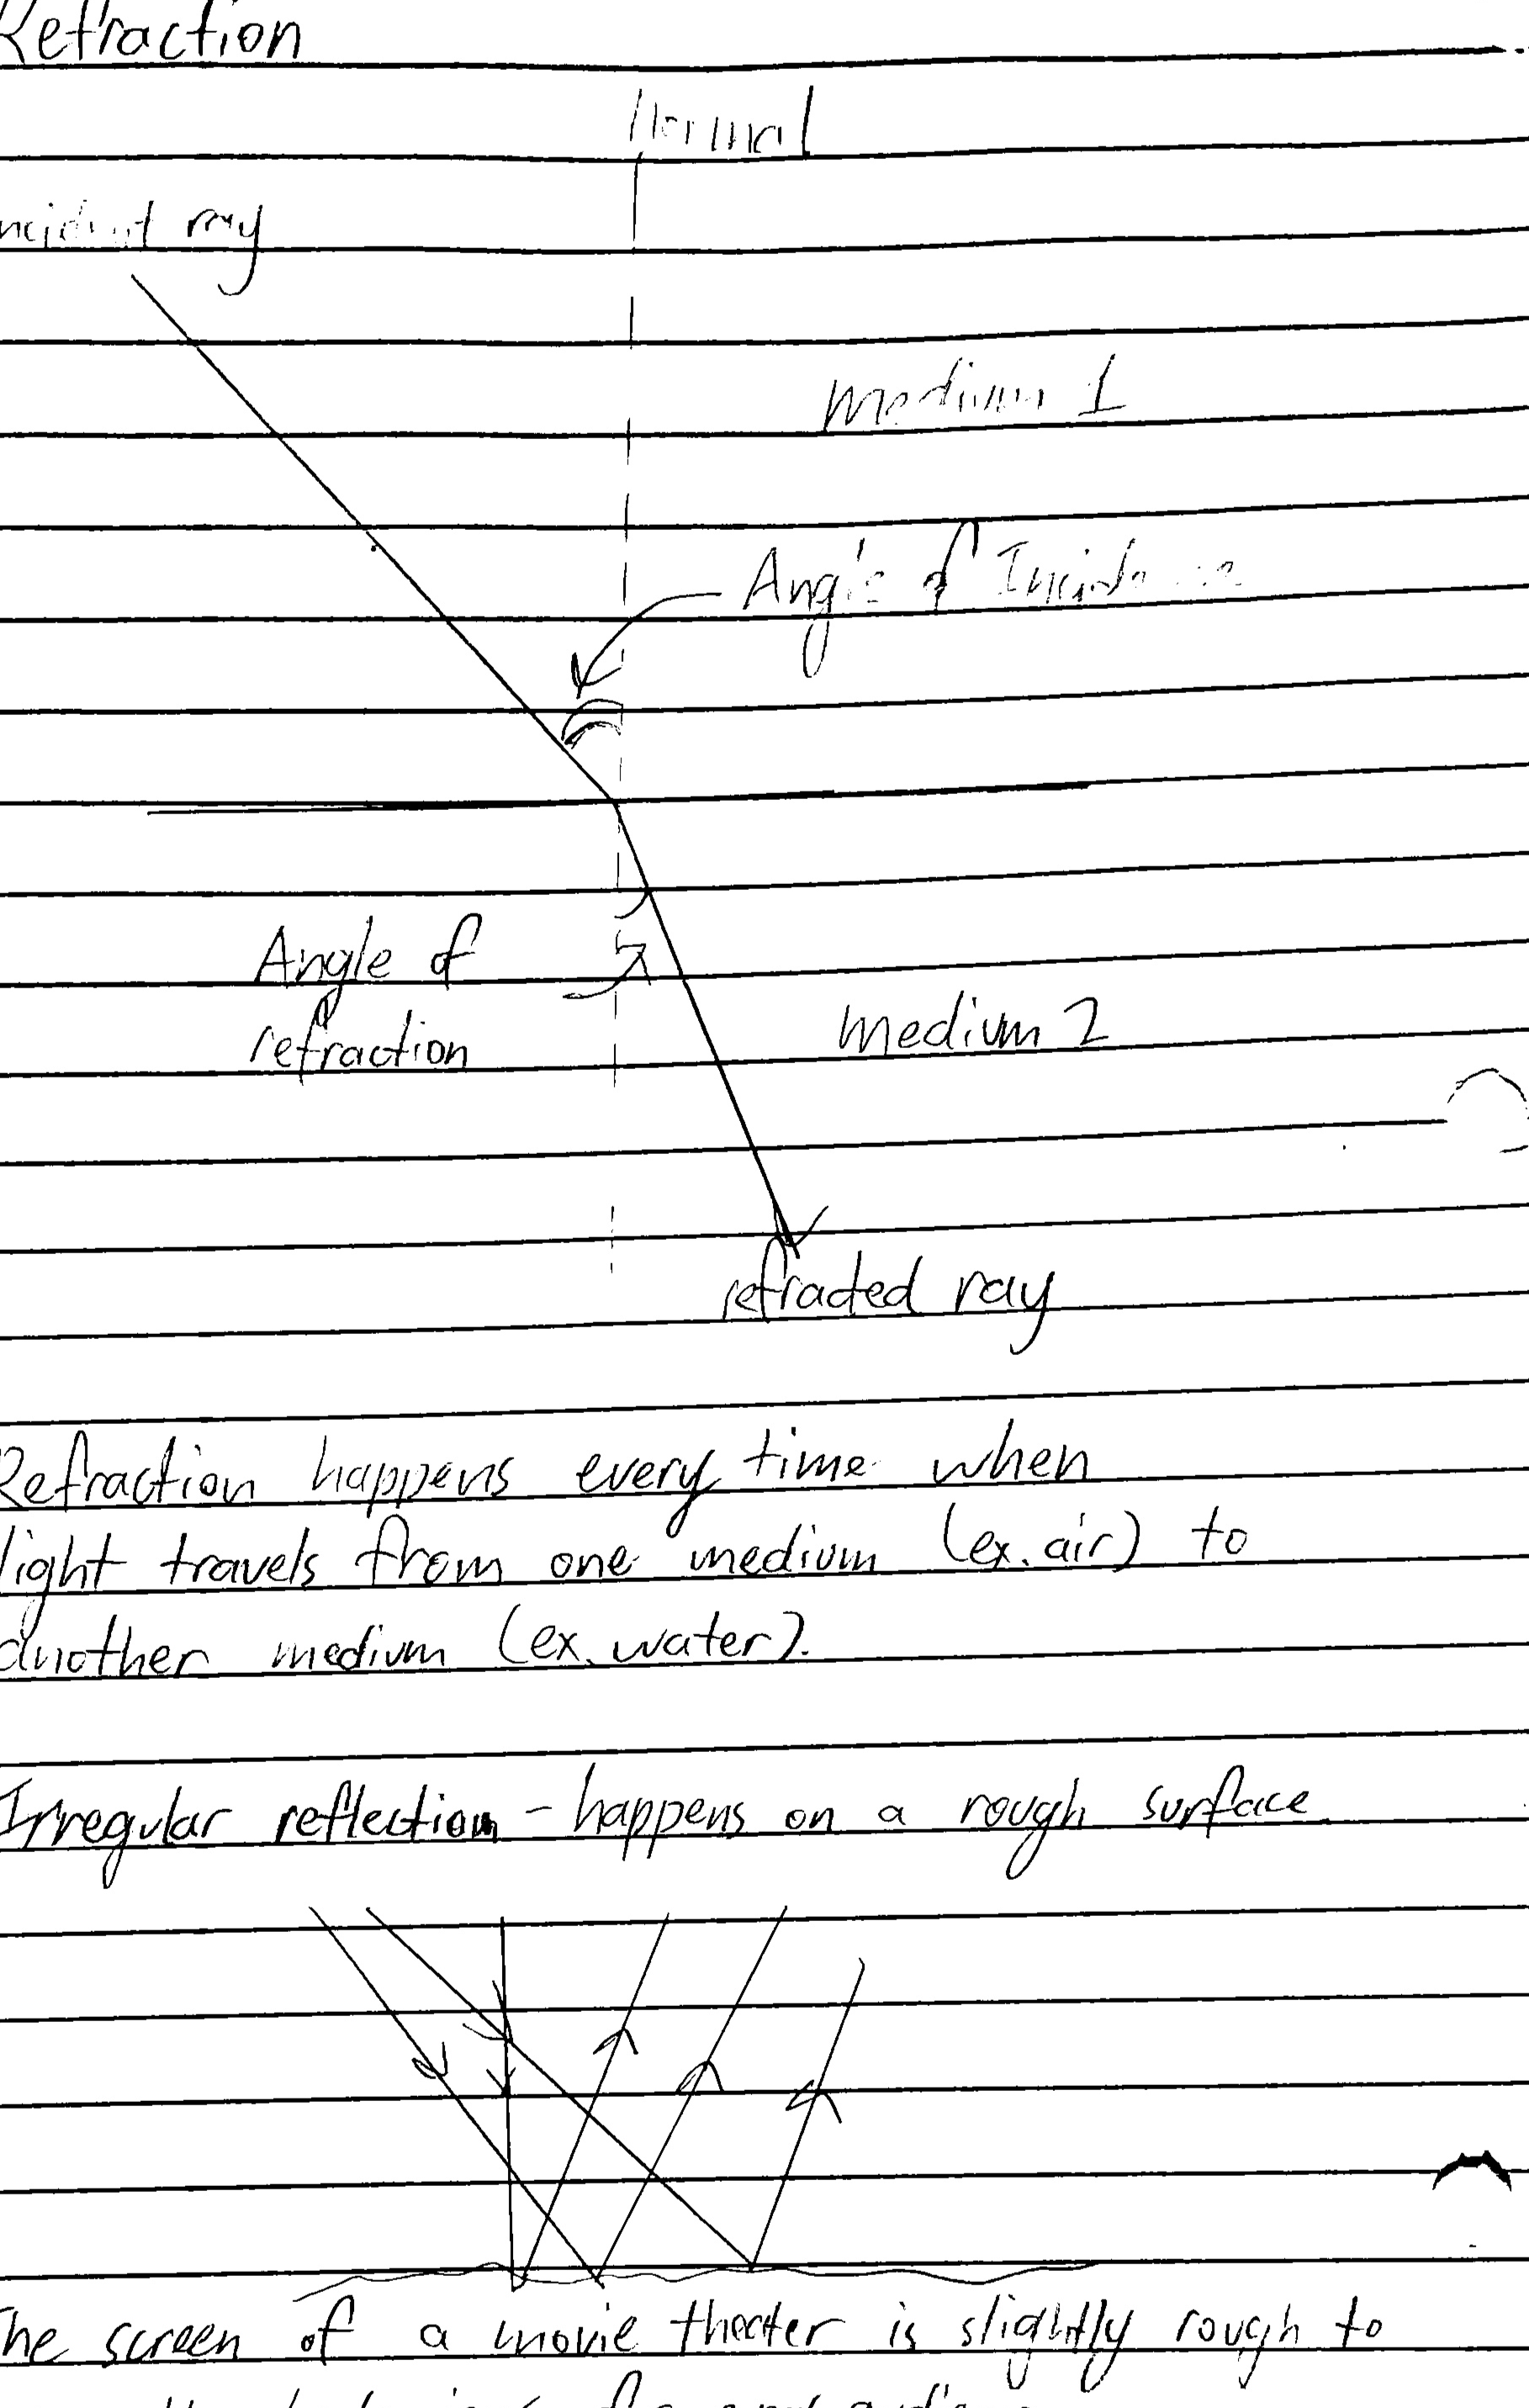 Refraction
Normal
Incident ray
Medium 1
Angle of Incidence
Angle of
refraction
Medium 2
refracted ray
Refraction happens every time when
light travels from one medium (ex. air) to
another medium (ex. water).
Irregular reflection - happens on a rough surface
The screen of a movie theater is slightly rough to